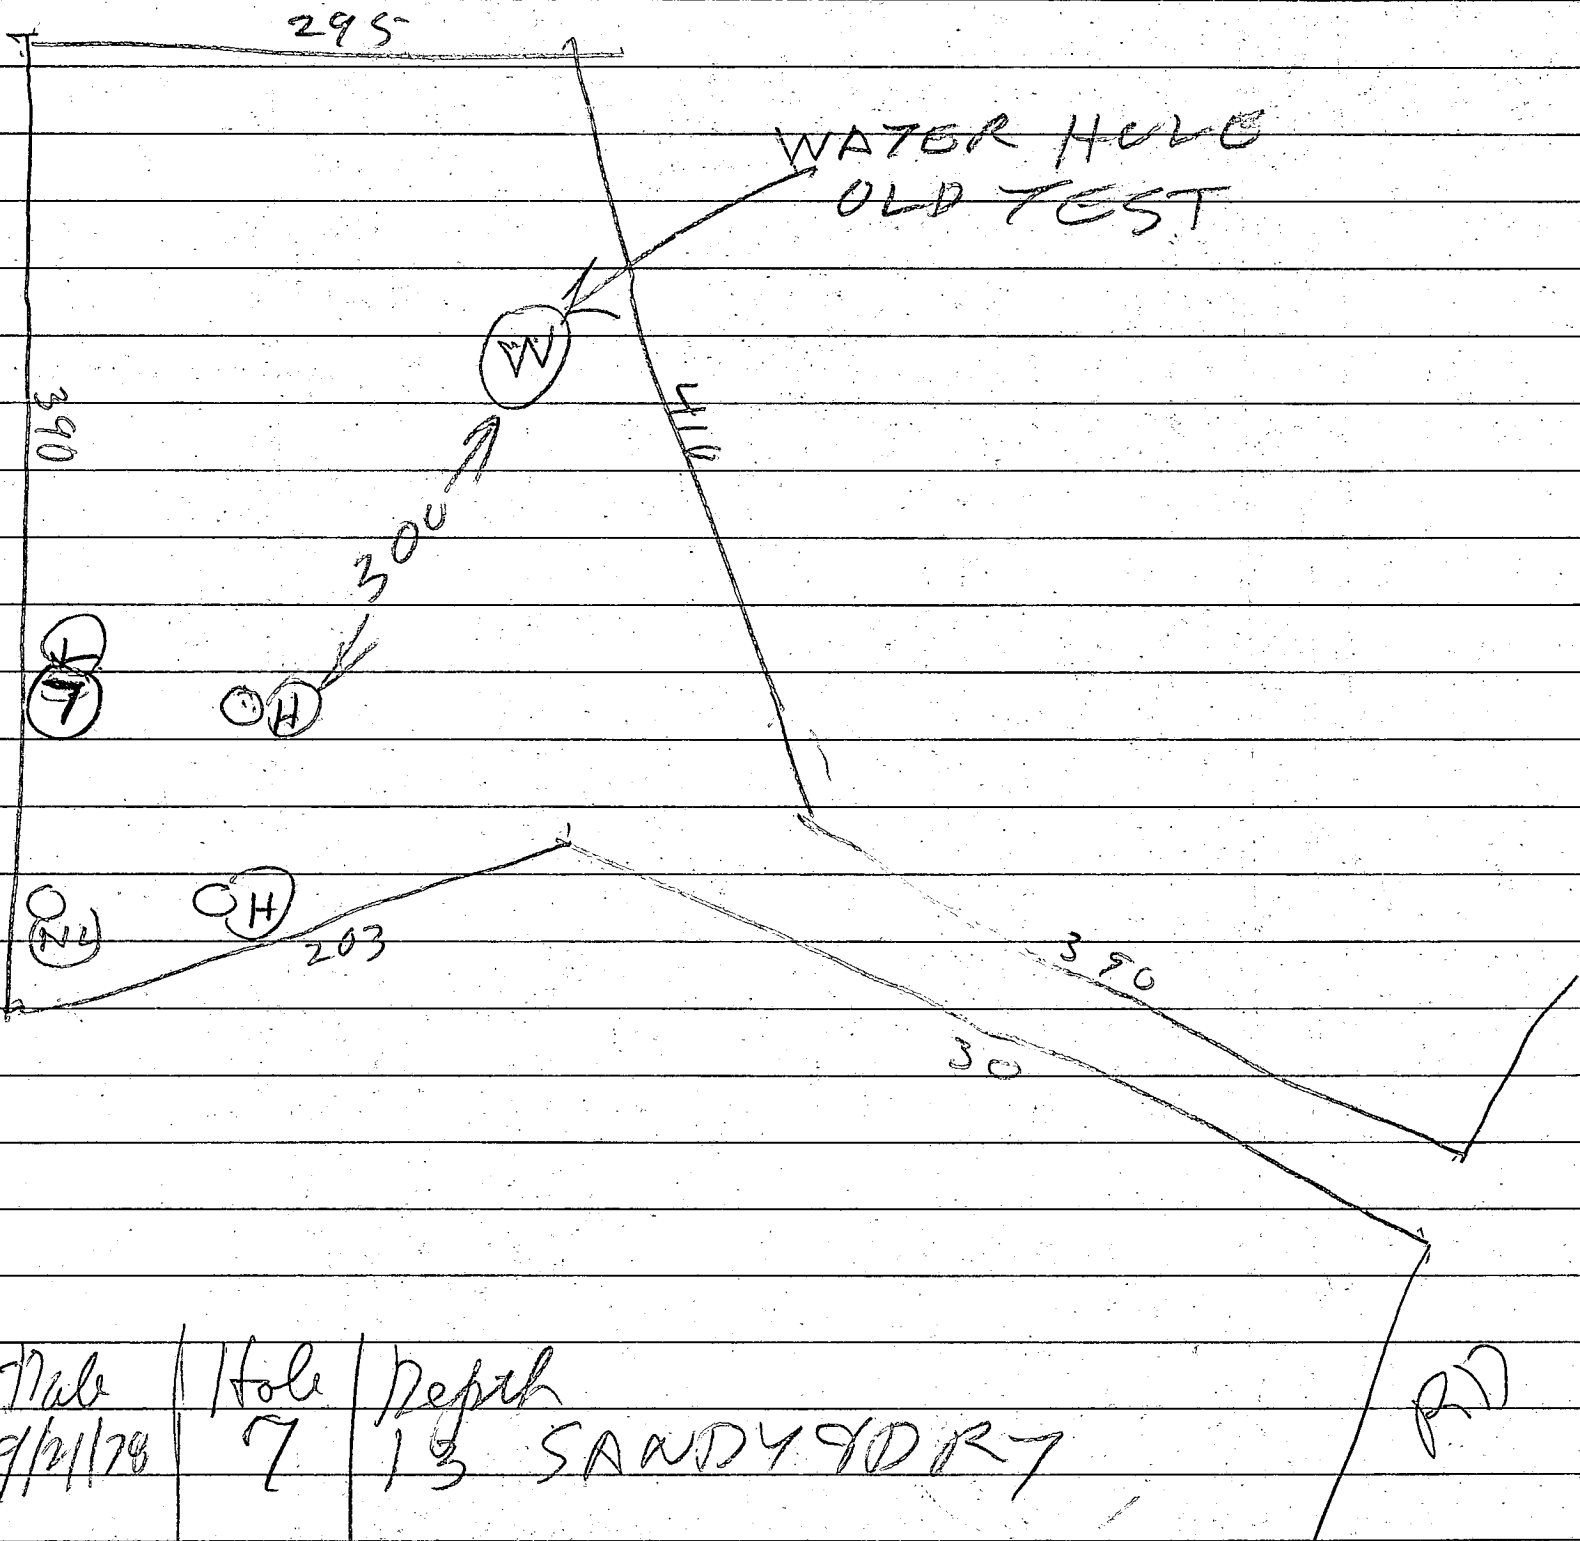 295
WATER HOLE
OLD TEST
W
390
300
7
H
H
203
390
30
Date Hole Depth
9/21/78 7 13 SANDY & DRY
RD